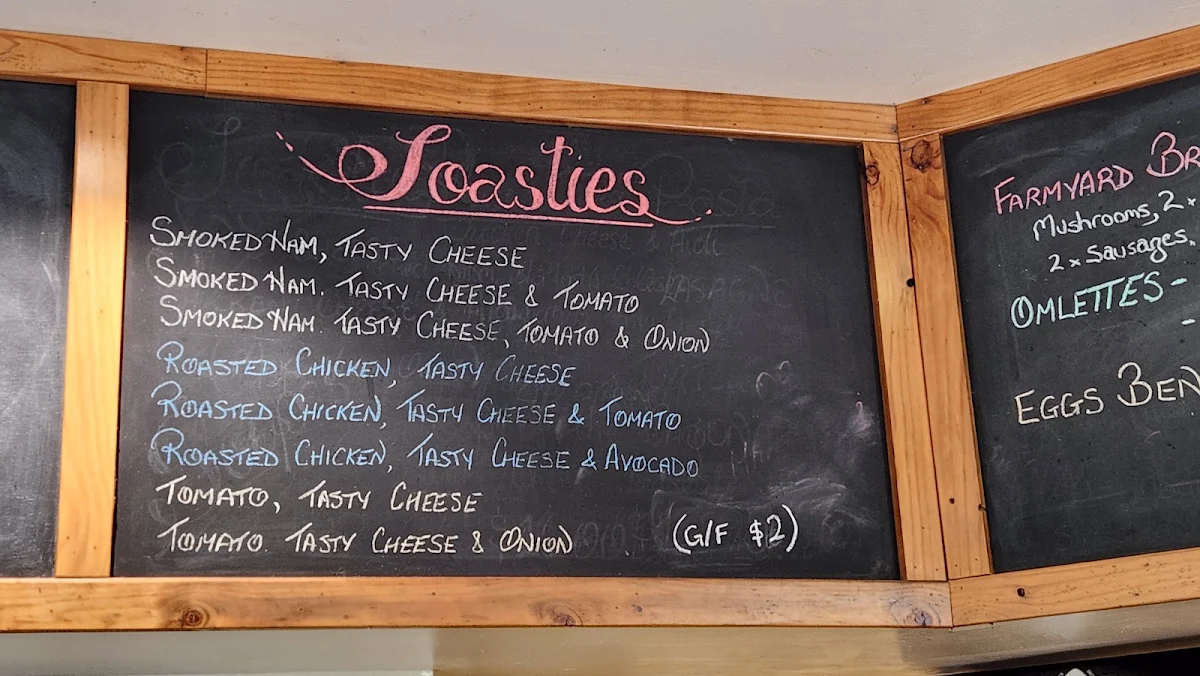 Toasties
SMOKED HAM, TASTY CHEESE
SMOKED HAM. TASTY CHEESE & TOMATO
SMOKED HAM. TASTY CHEESE, TOMATO & ONION
ROASTED CHICKEN, TASTY CHEESE
ROASTED CHICKEN, TASTY CHEESE & TOMATO
ROASTED CHICKEN, TASTY CHEESE & AVOCADO
TOMATO, TASTY CHEESE
TOMATO. TASTY CHEESE & ONION
(G/F $2)
FARMYARD BR
Mushrooms, 2 x
2 x Sausages.
OMLETTES -
-
EGGS BEN